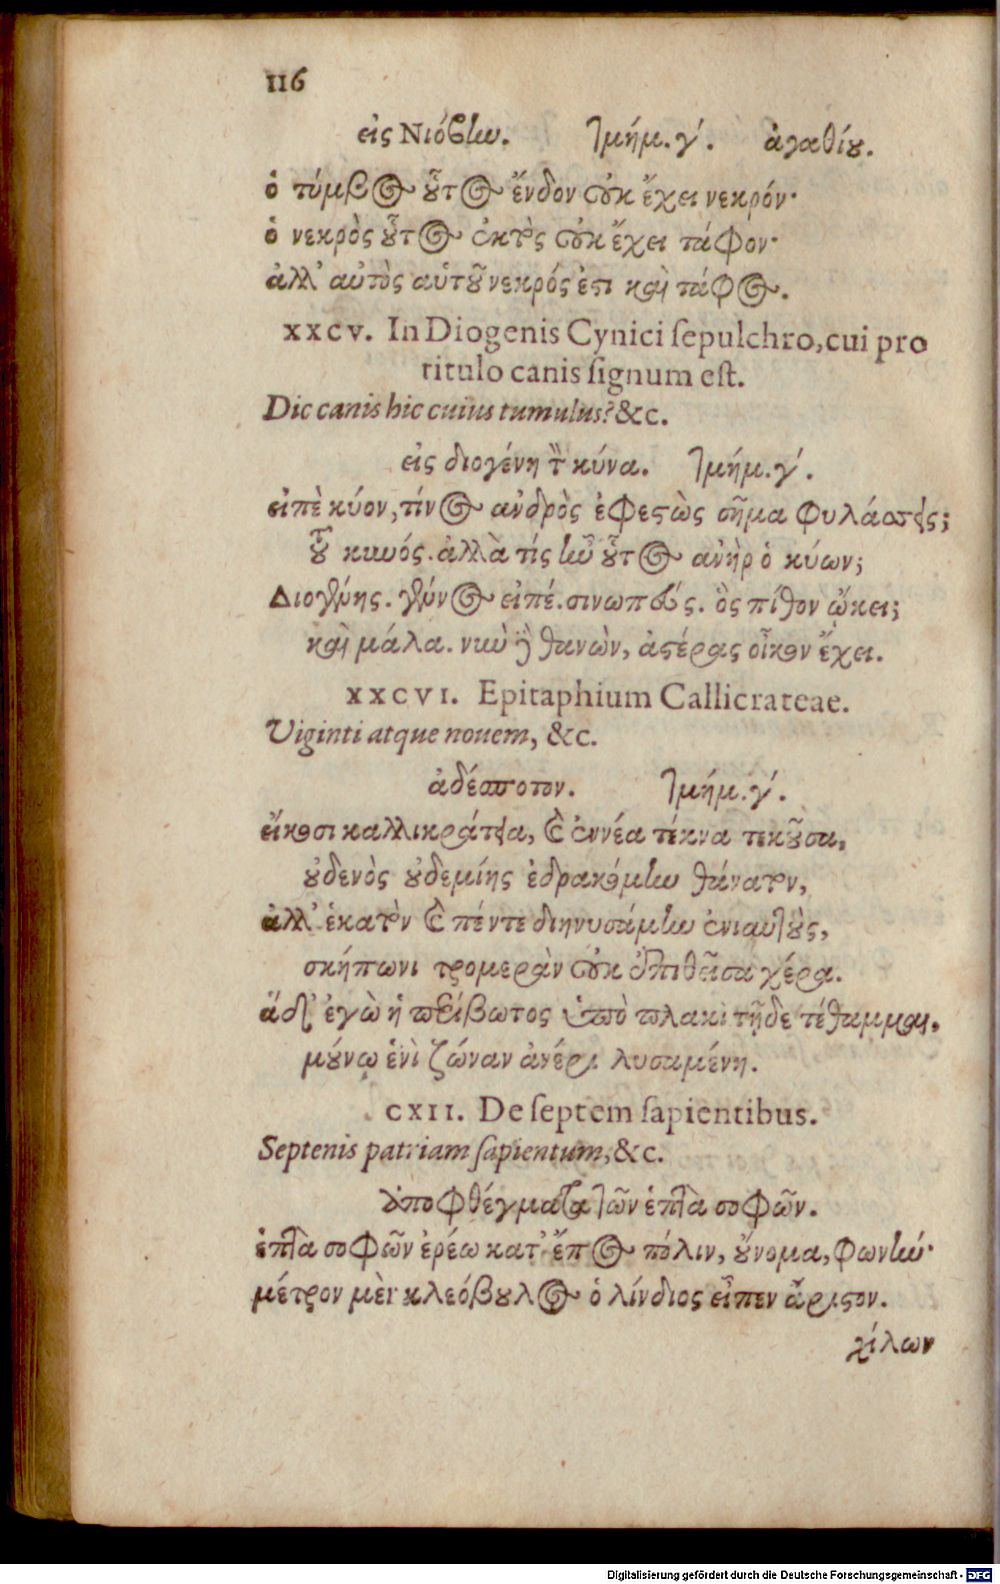 116
εἰς Νιόβην. Τμήμ. γʹ. ἀγαθίου.
ὁ τύμβος οὗτος ἔνδον οὐκ ἔχει νεκρόν·
ὁ νεκρὸς οὗτος ἐκτὸς οὐκ ἔχει τάφον·
ἀλλ' αὐτὸς αὑτοῦ νεκρός ἐστι καὶ τάφος.
XXCV. In Diogenis Cynici ſepulchro, cui pro
titulo canis ſignum eſt.
Dic canis hic cuius tumulus? &c.
εἰς διογένη τὸν κύνα. Τμήμ. γʹ.
εἰπὲ κύον, τίνος ἀνδρὸς ἐφεστὼς σῆμα φυλάσσεις;
τοῦ κυνός. ἀλλὰ τίς ἦν οὗτος ἀνὴρ ὁ κύων;
Διογένης. γένος εἰπέ. σινωπεύς. ὃς πίθον ᾤκει;
καὶ μάλα. νῦν δὲ θανὼν, ἀστέρας οἶκον ἔχει.
XXCVI. Epitaphium Callicrateae.
Viginti atque nouem, &c.
ἀδέσποτον. Τμήμ. γʹ.
εἴκοσι καλλικράτεια, καὶ ἐννέα τέκνα τεκοῦσα,
οὐδενὸς οὐδεμίης ἐδρακόμην θάνατον,
ἀλλ' ἑκατὸν καὶ πέντε διηνυσάμην ἐνιαυτοὺς,
σκήπωνι τρομερὰν οὐκ ἐπιθεῖσα χέρα.
ἅδ' ἐγὼ ἡ περίβωτος ὑπὸ πλακὶ τῇδε τέθαμμαι,
μούνῳ ἑνὶ ζώναν ἀνέρι λυσαμένη.
CXII. De ſeptem ſapientibus.
Septenis patriam ſapientum, &c.
ἀποφθέγματα τῶν ἑπτὰ σοφῶν.
ἑπτὰ σοφῶν ἐρέω κατ' ἔπος πόλιν, οὔνομα, φωνήν·
μέτρον μὲν κλεόβουλος ὁ λίνδιος εἶπεν ἄριστον.
χίλων
Digitalisierung gefördert durch die Deutsche Forschungsgemeinschaft - DFG